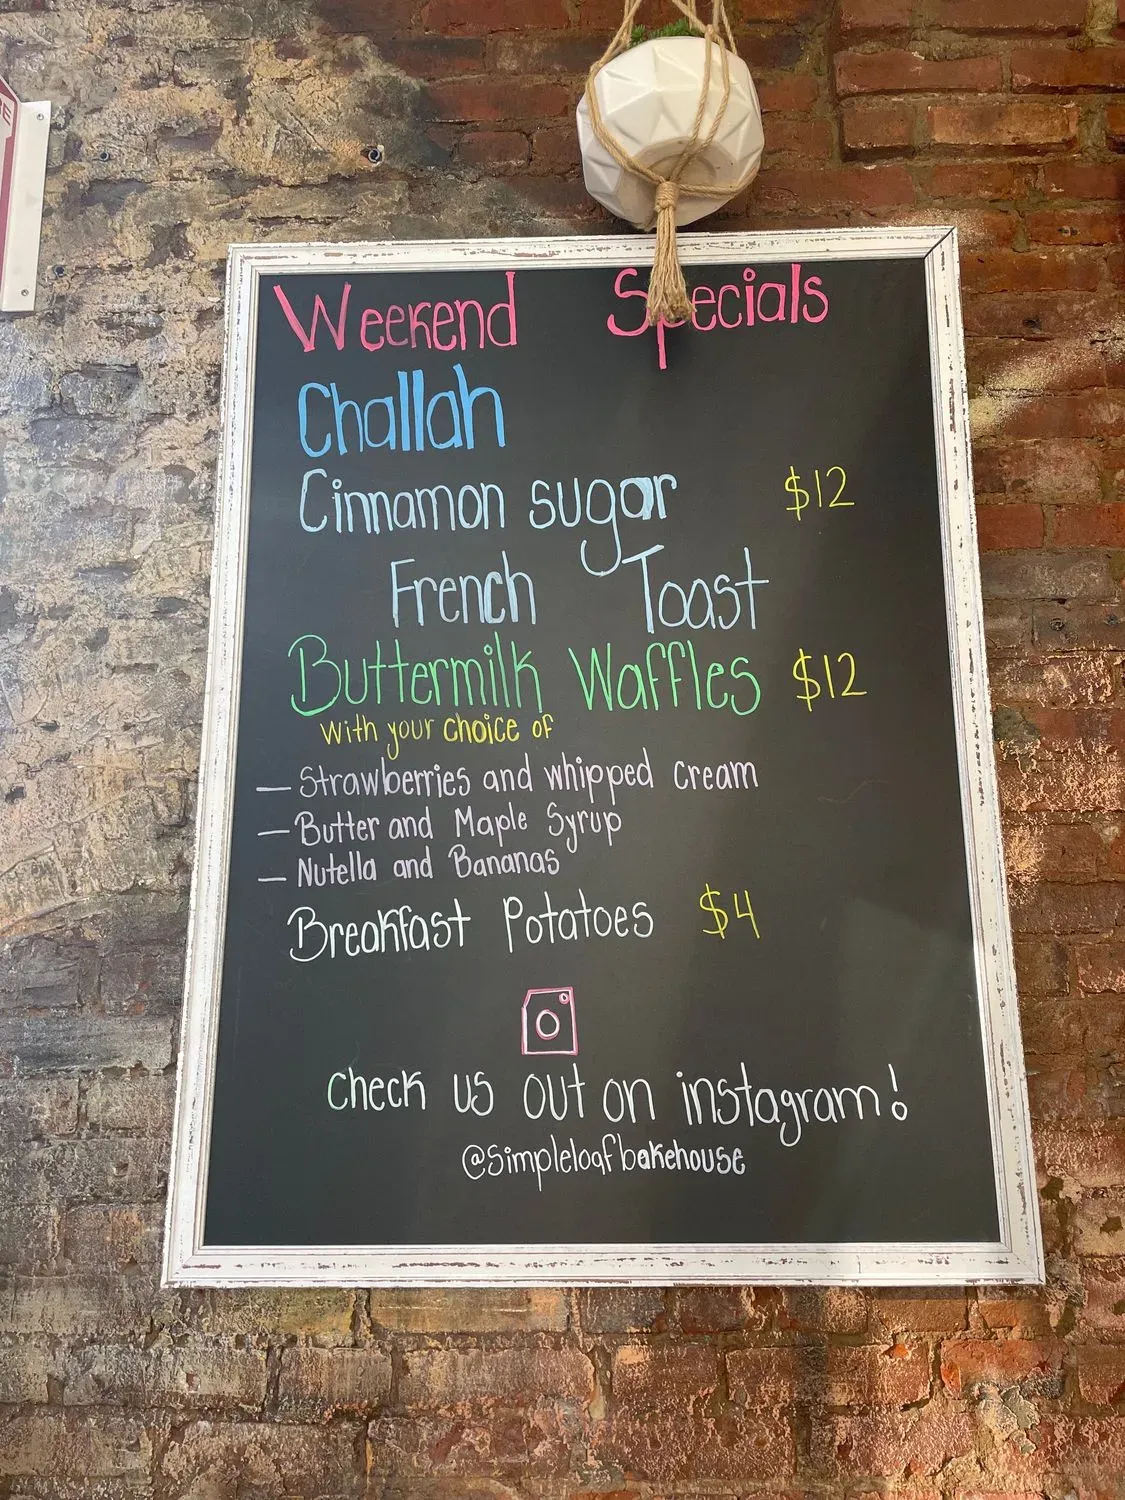 Weekend Specials
Challah
Cinnamon sugar $12
French Toast
Buttermilk Waffles $12
with your choice of
— Strawberries and whipped cream
— Butter and Maple Syrup
— Nutella and Bananas
Breakfast Potatoes $4
check us out on instagram!
@simpleloafbakehouse